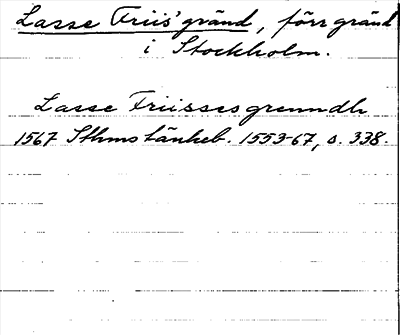 Lasse Friis' gränd, förr gränd
i Stockholm.
Lasse Friisses grenndh
1567 Sthms tänkeb. 1553-67, s. 338.